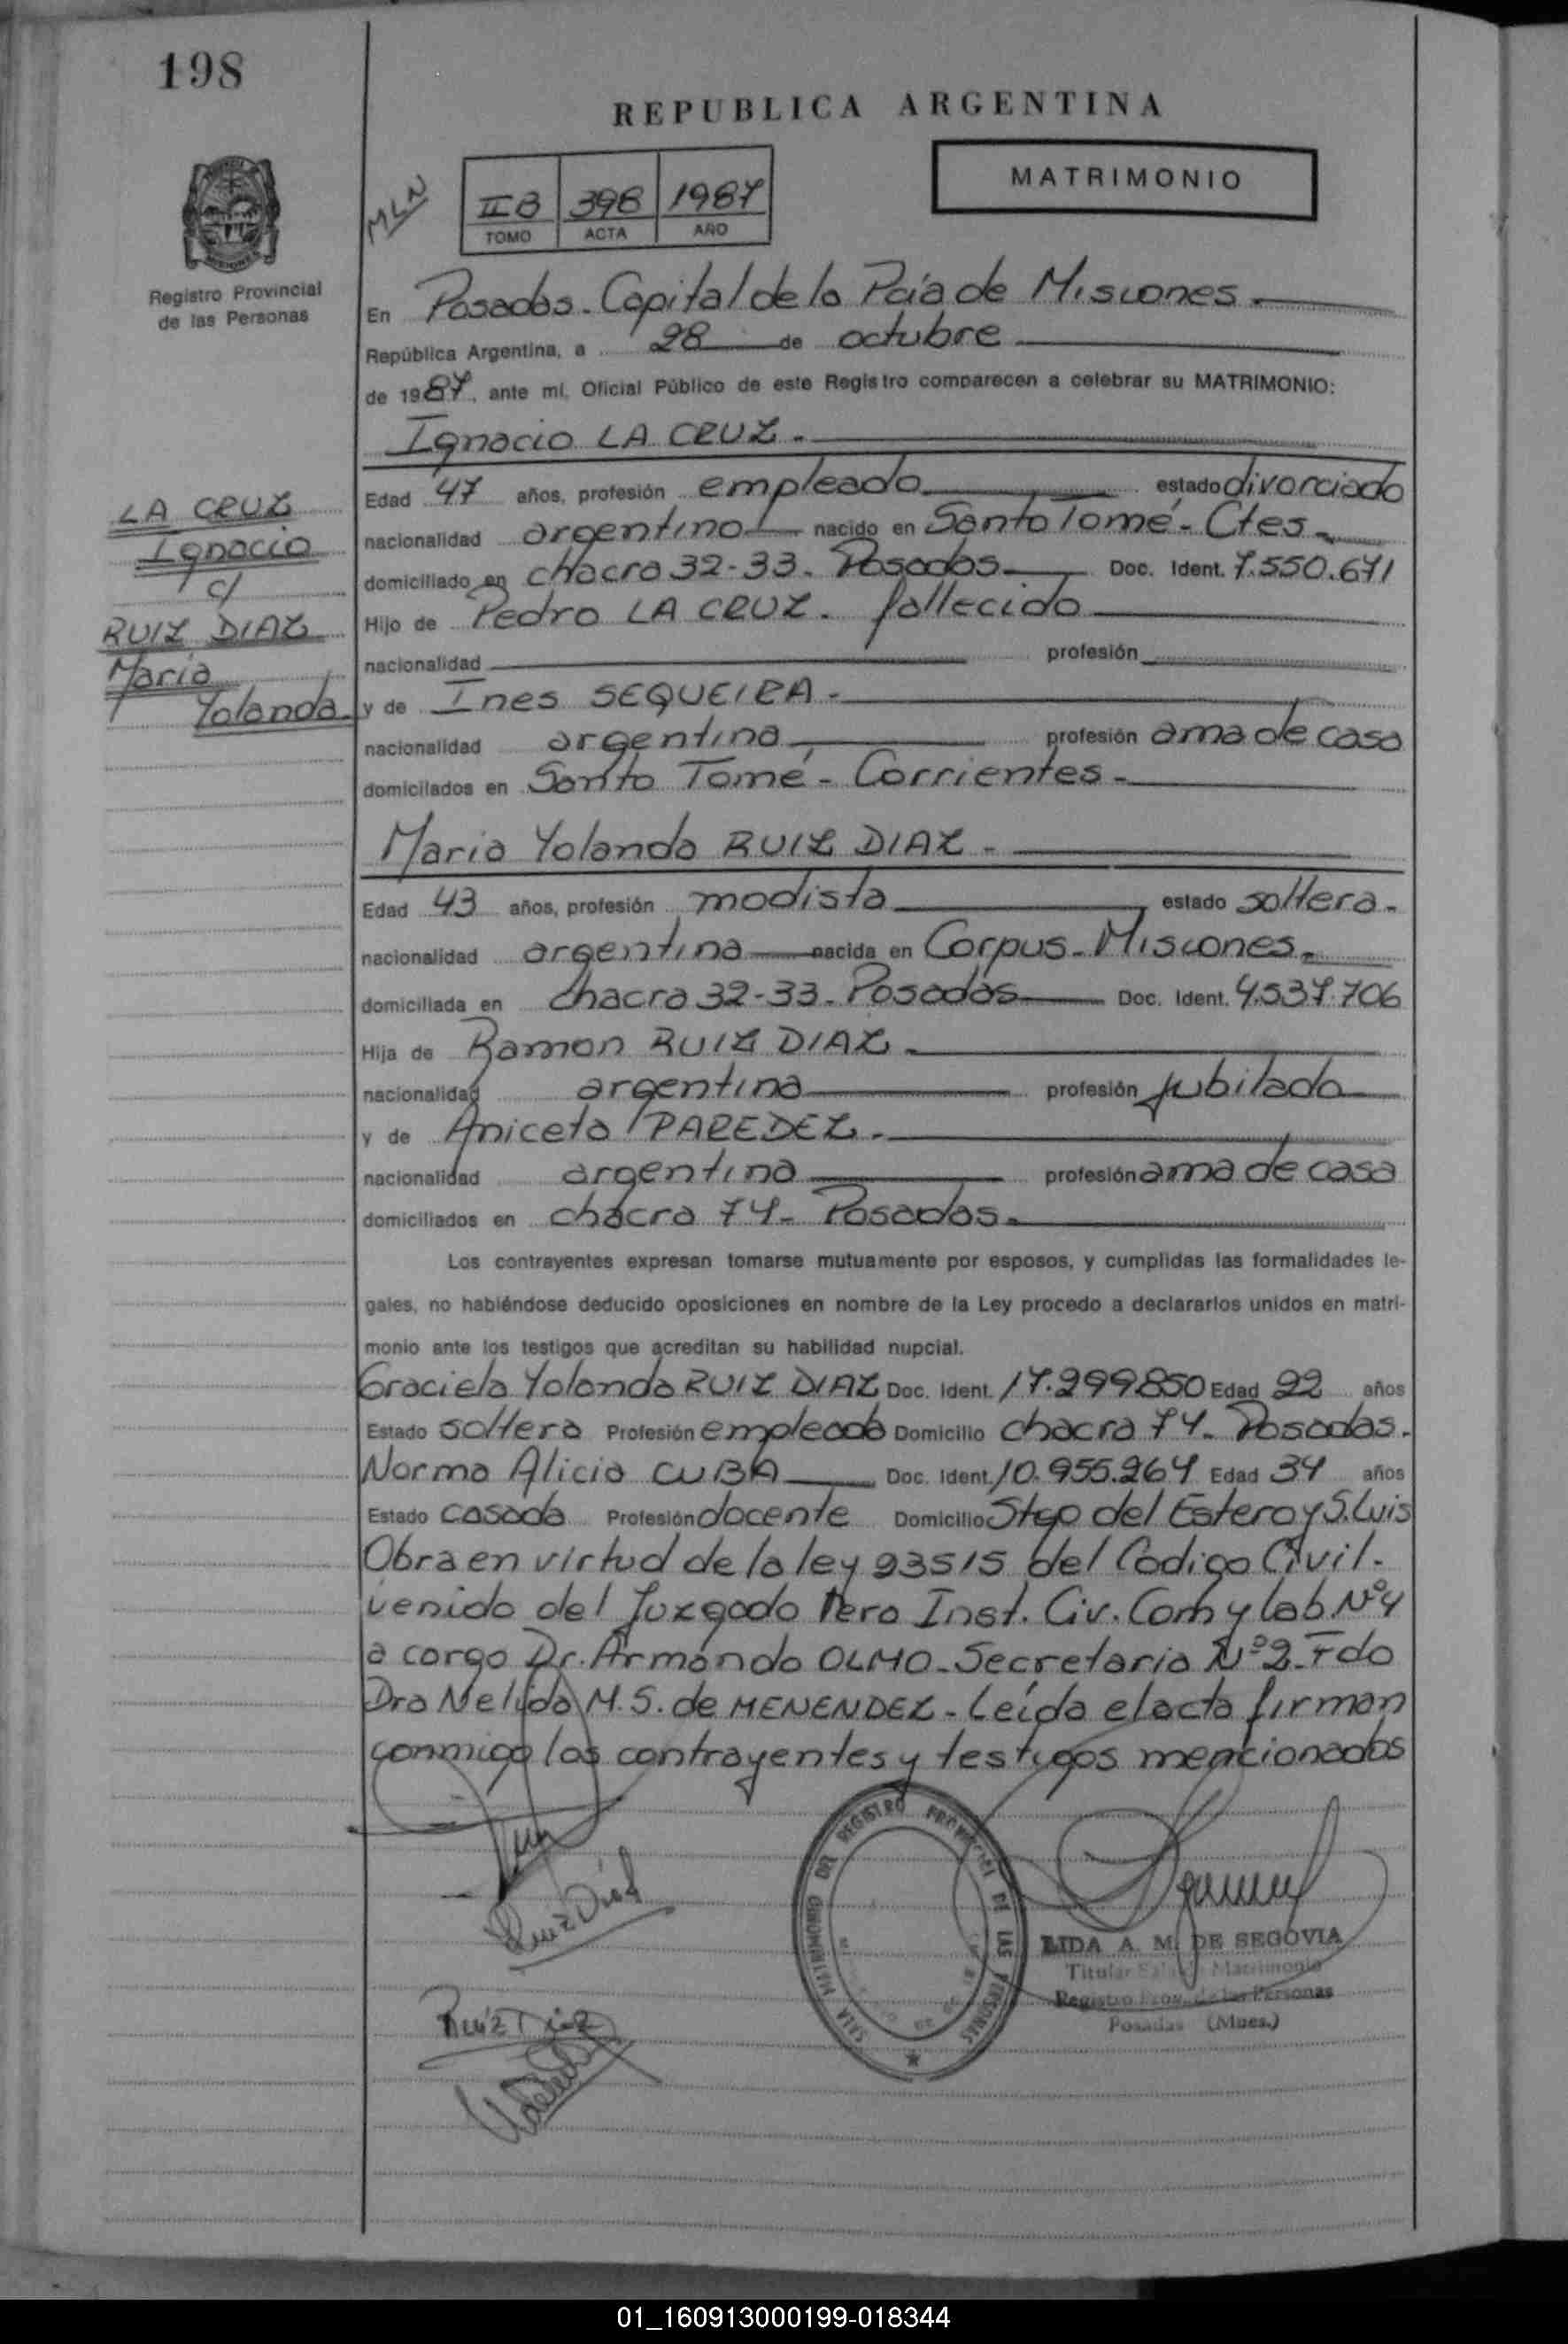 198
REPUBLICA ARGENTINA
MATRIMONIO
MLN
II B 398 1987
TOMO ACTA AÑO
Registro Provincial
de las Personas
En Posadas. Capital de la Pcia de Misiones.
República Argentina, a 28 de octubre
de 1987, ante mí, Oficial Público de este Registro comparecen a celebrar su MATRIMONIO:
Ignacio LA CRUZ.
Edad 47 años, profesión empleado estado divorciado
nacionalidad argentino nacido en Santo Tomé - Ctes.
domiciliado en chacra 32-33. Posadas Doc. Ident. 7.550.671
Hijo de Pedro LA CRUZ. fallecido
nacionalidad profesión
y de Ines SEQUEIRA.
nacionalidad argentina profesión ama de casa
domicilados en Santo Tomé - Corrientes.
LA CRUZ
Ignacio
c/
RUIZ DIAZ
Maria
Yolanda.
Maria Yolanda RUIZ DIAZ.
Edad 43 años, profesión modista estado soltera.
nacionalidad argentina nacida en Corpus - Misiones.
domiciliada en chacra 32-33. Posadas Doc. Ident. 4.537.706
Hija de Ramon RUIZ DIAZ.
nacionalidad argentina profesión jubilado
y de Aniceta PAREDEZ.
nacionalidad argentina profesión ama de casa
domiciliados en chacra 74. Posadas.
Los contrayentes expresan tomarse mutuamente por esposos, y cumplidas las formalidades le-
gales, no habiéndose deducido oposiciones en nombre de la Ley procedo a declararlos unidos en matri-
monio ante los testigos que acreditan su habilidad nupcial.
Graciela Yolanda RUIZ DIAZ Doc. Ident. 17.299.850 Edad 22 años
Estado soltera Profesión empleada Domicilio chacra 74. Posadas.
Norma Alicia CUBA Doc. Ident. 10.955.264 Edad 34 años
Estado casada Profesión docente Domicilio Stgo del Estero y S. Luis
Obra en virtud de la ley 23515 del Codigo Civil.
venido del Juzgado 1ero Inst. Civ. Com y Lab. Nº 4
a cargo Dr. Armando OLMO - Secretaria Nº 2. Fdo
Dra Nelida M. S. de MENENDEZ - Leída el acta firman
conmigo los contrayentes y testigos mencionados
Ruiz Diaz
Ruíz Diaz
SALA MATRIMONIO DEL REGISTRO PROVINCIAL DE LAS PERSONAS
LIDA A. M. DE SEGOVIA
Titular Sala de Matrimonio
Registro Prov. de las Personas
Posadas (Mnes.)
01_160913000199-018344